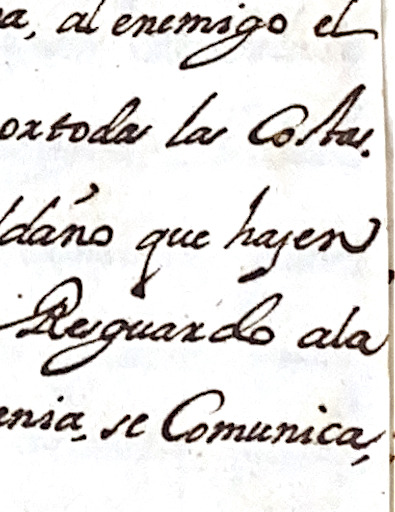 a, al enemigo el
ortodas las Costas.
ldaño que hajen
Resguardo ala
enia, se Comunica,